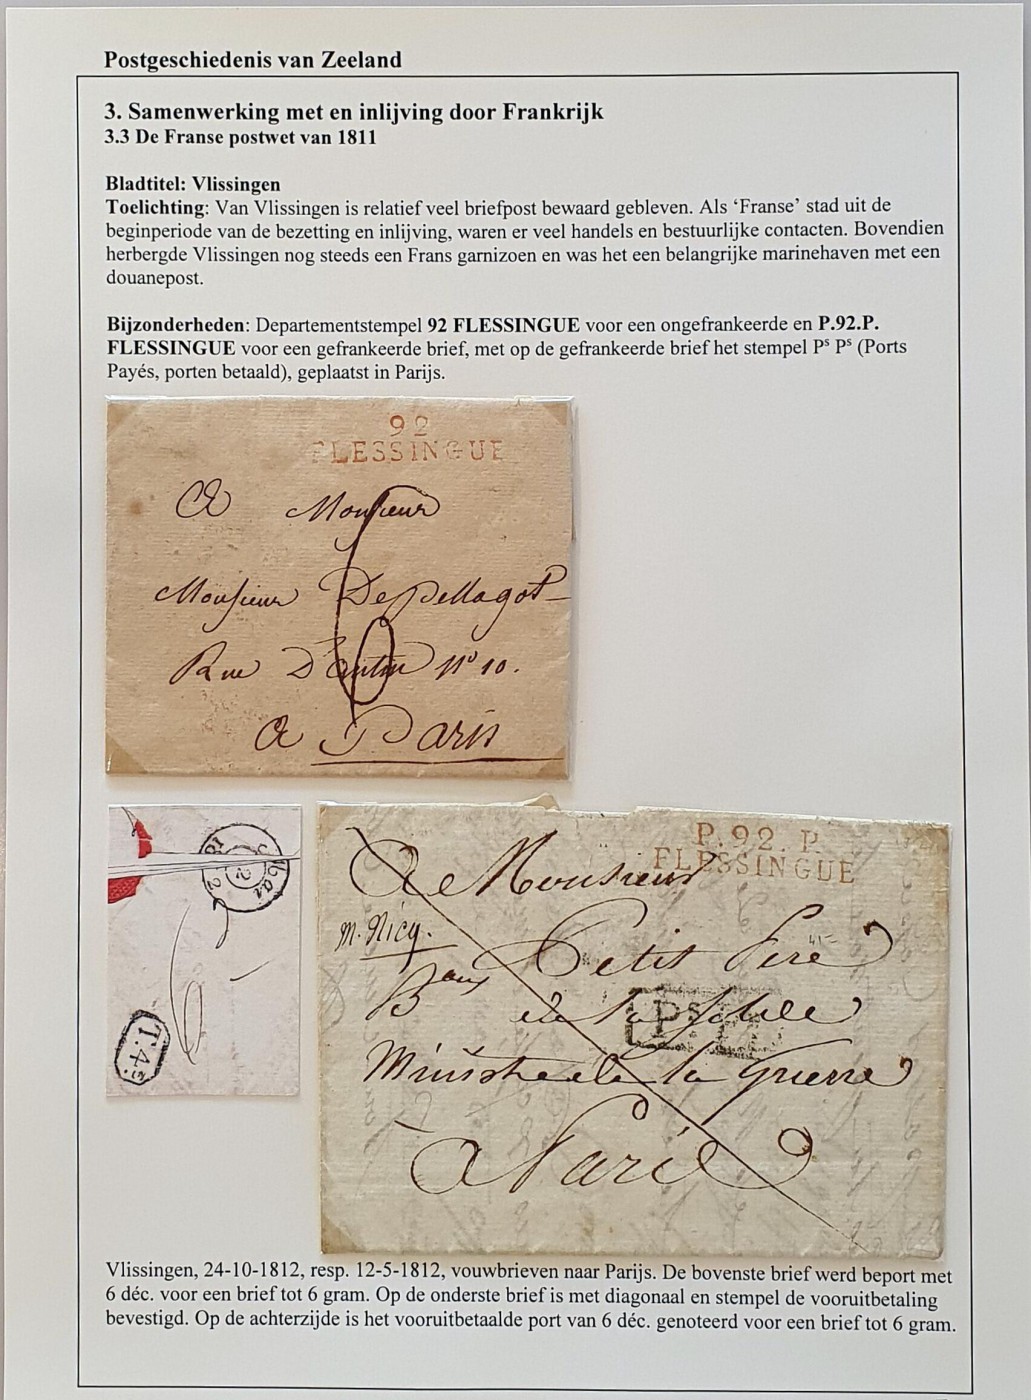 Postgeschiedenis van Zeeland
3. Samenwerking met en inlijving door Frankrijk
3.3 De Franse postwet van 1811
Bladtitel: Vlissingen
Toelichting: Van Vlissingen is relatief veel briefpost bewaard gebleven. Als ‘Franse’ stad uit de
beginperiode van de bezetting en inlijving, waren er veel handels en bestuurlijke contacten. Bovendien
herbergde Vlissingen nog steeds een Frans garnizoen en was het een belangrijke marinehaven met een
douanepost.
Bijzonderheden: Departementstempel 92 FLESSINGUE voor een ongefrankeerde en P.92.P.
FLESSINGUE voor een gefrankeerde brief, met op de gefrankeerde brief het stempel Pˢ Pˢ (Ports
Payés, porten betaald), geplaatst in Parijs.
92
FLESSINGUE
A Monsieur
Monsieur De Pellagot
Rue D'antin N° 10.
6
a Paris
T.4
6
P.92.P.
FLESSINGUE
A Monsieur
m. Nicq.
Petit
de la
de la Guerre
A Paris
Vlissingen, 24-10-1812, resp. 12-5-1812, vouwbrieven naar Parijs. De bovenste brief werd beport met
6 déc. voor een brief tot 6 gram. Op de onderste brief is met diagonaal en stempel de vooruitbetaling
bevestigd. Op de achterzijde is het vooruitbetaalde port van 6 déc. genoteerd voor een brief tot 6 gram.